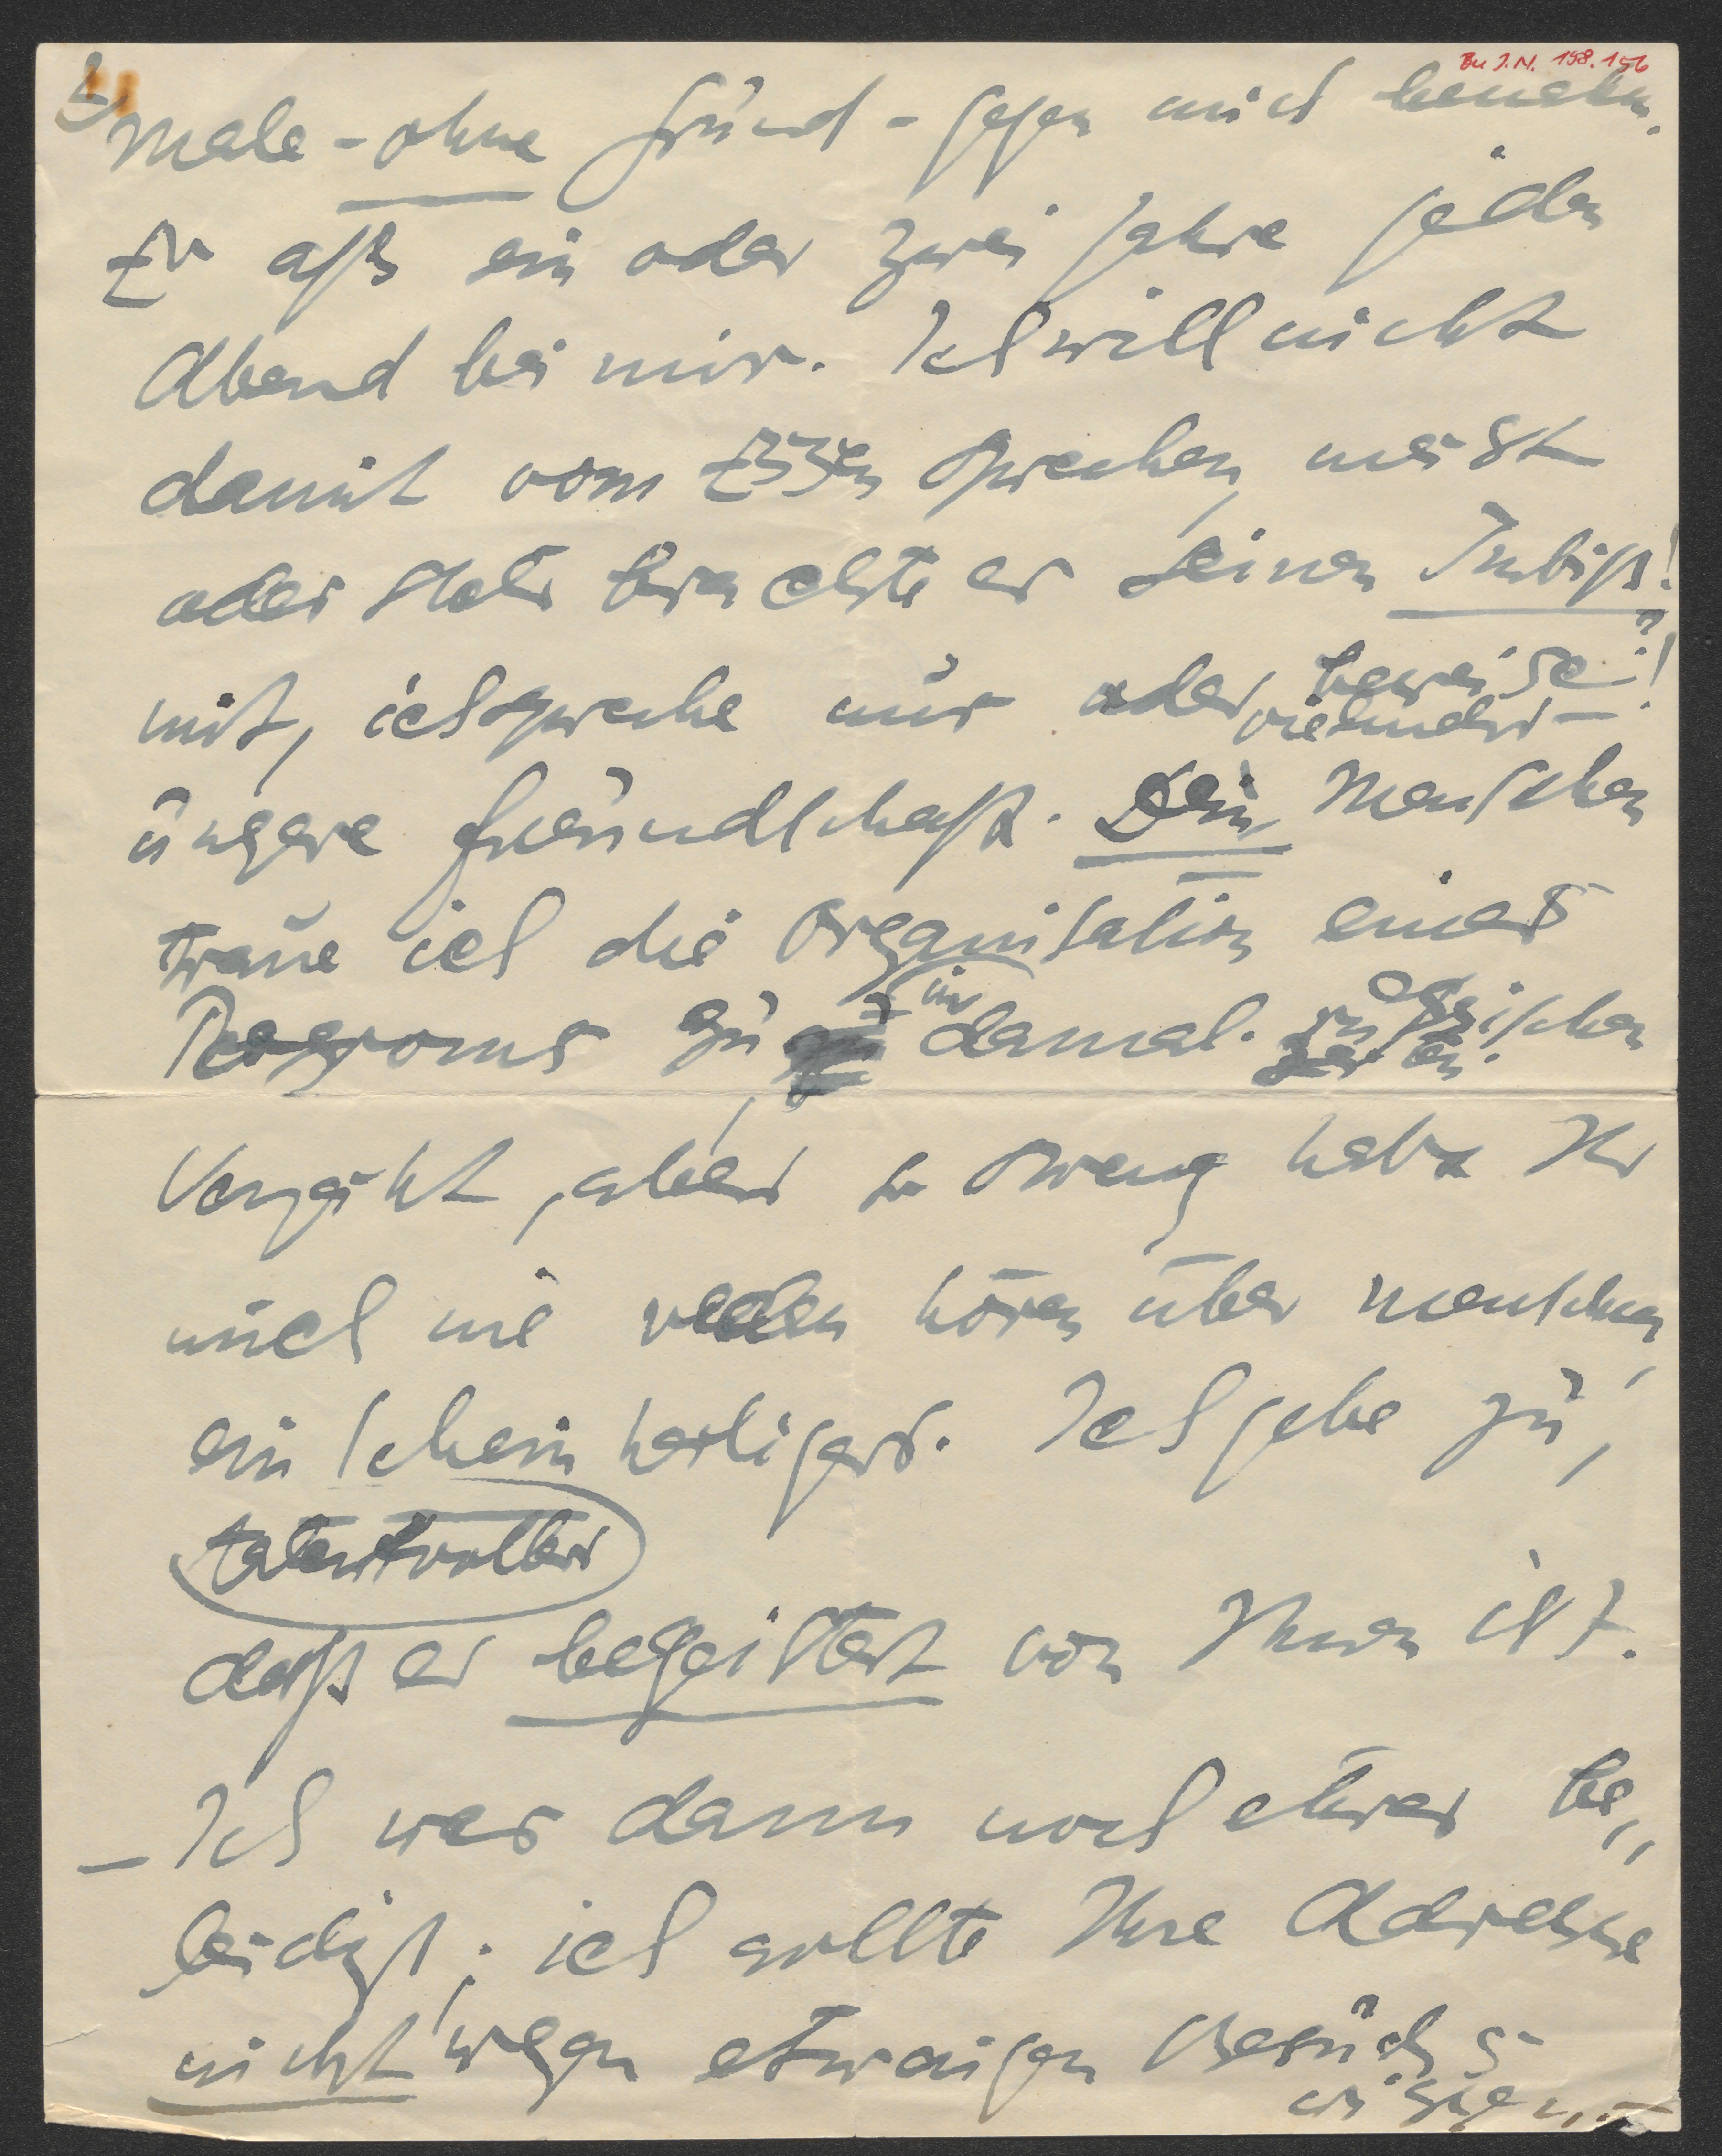 Zu I.N. 198.156
2)
Male - ohne Grund - gegen mich benehm.
Er aß ein oder zwei Jahre jeden
Abend bei mir. Ich will nicht
damit vom Essen sprechen, meist
oder stets brachte er seinen Imbiß!
mit, ich spreche nur oder beweise?!
vielmehr -
unsere Freundschaft. Dem Menschen
traue ich die Organisation eines
Pogroms zu im damal. russischen
Verzeiht, aber so streng habt Ihr
mich nie reden hören über Menschen,
ein Scheinheiliger. Ich gebe zu,
talentvoller
daß er begeistert von Ihnen ist.
- Ich war dann noch etwas be„
leidigt; ich sollte Ihre Adresse
nicht wegen etwaigen Besuchs
wissen